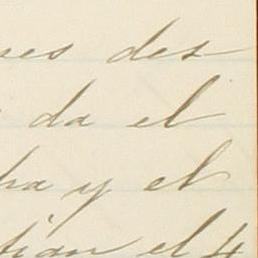 ses des
da el
ha y el
tian el 4